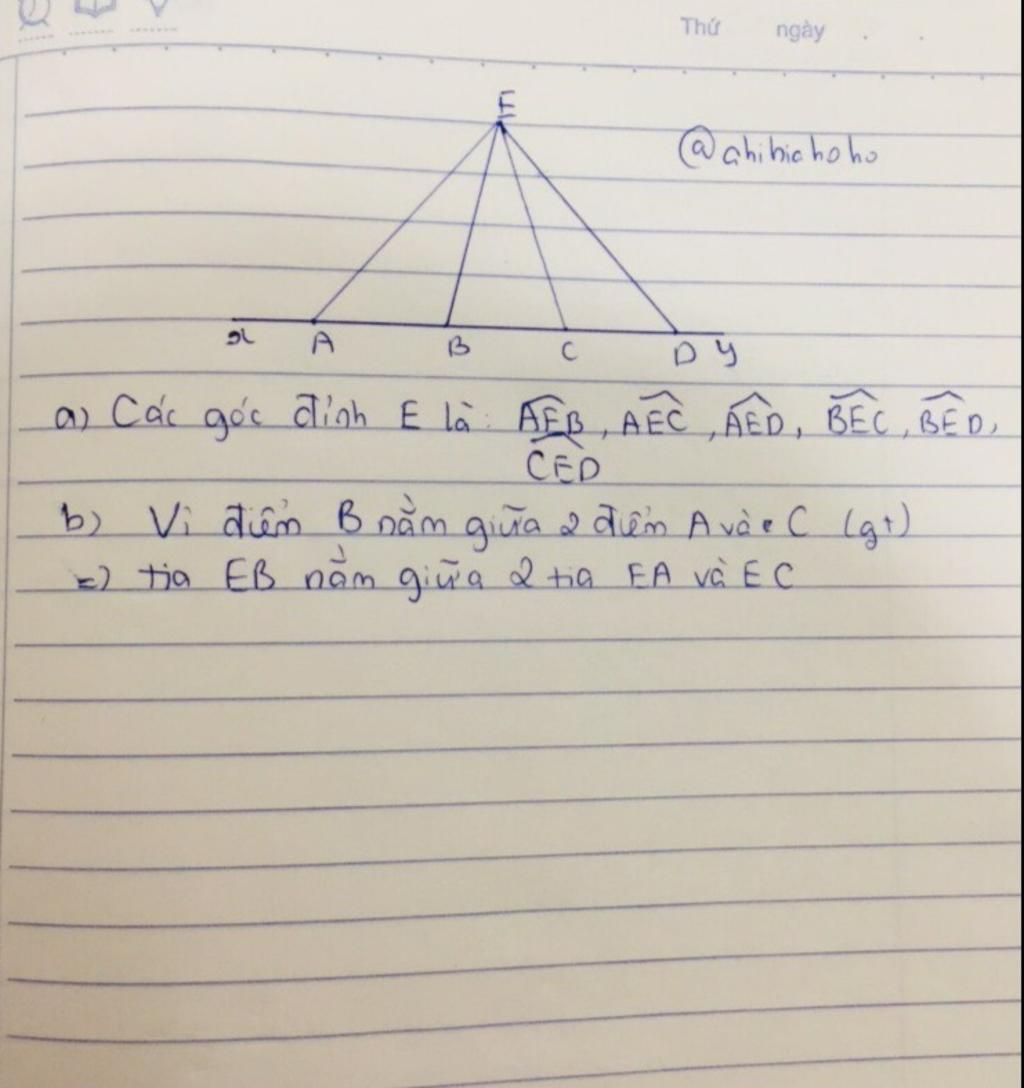 Thứ ngày . .
E
@ahihichoho
x A B C D y
a) Các góc đỉnh E là: AEB, AEC, AED, BEC, BED,
CED
b) Vì điểm B nằm giữa 2 điểm A và C (gt)
=) tia EB nằm giữa 2 tia EA và EC